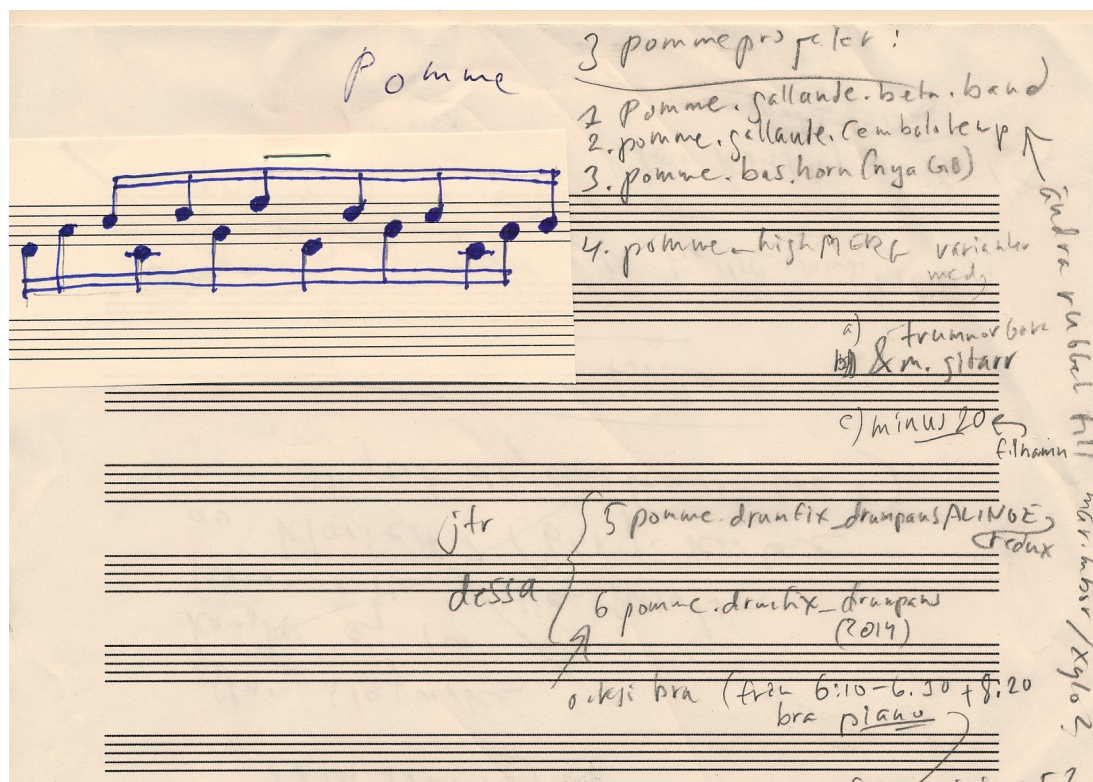 Pomme
3 pommeprojekt:
1 Pomme.gallande.beta.band
2. pomme.gallante.Cembalo.temp
3. pomme.bas.horn (nya GB)
4. pomme_high MERG varianter
med
a) trumnor bara
b) & m. gitarr
c) minus 20
filnamn
jfr
dessa
5 pomme.drumfix_drumpansALINGE
redux
6 pomme.drumfix_drumpans
(2014)
bra (från 6:10-6.30 + 8:20
bra piano
ändra rubbel till /xylo?